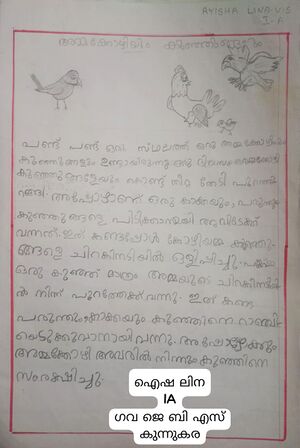 AYISHA LINA V.S
I-A
അമ്മക്കോഴിയും കുഞ്ഞുങ്ങളും
പണ്ട് പണ്ട് ഒരു സ്ഥലത്ത് ഒരു അമ്മക്കോഴിയും
കുഞ്ഞുങ്ങളും ഉണ്ടായിരുന്നു ഒരു ദിവസം അമ്മക്കോഴി
കുഞ്ഞുങ്ങളേയും കൊണ്ട് തീറ്റ തേടി പുറത്ത
റങ്ങി. അപ്പോഴാണ് ഒരു കാക്കയും, പരുന്തും
കുഞ്ഞുങ്ങളെ പിടിക്കാനായി അവിടേക്ക്
വന്നത്. ഇത് കണ്ടപ്പോൾ കോഴിയമ്മ കുഞ്ഞു
ങ്ങളെ ചിറകിനടിയിൽ ഒളിപ്പിച്ചു. പക്ഷെ
ഒരു കുഞ്ഞ് മാത്രം അമ്മയുടെ ചിറകിനടിയി
ൽ നിന്ന് പുറത്തേക്ക് വന്നു. ഇത് കണ്ട
പരുന്തും കാക്കയും കുഞ്ഞിനെ റാഞ്ചി
യെടുക്കുവാനായി വന്നു. അപ്പോഴേക്കും
അമ്മക്കോഴി അവരിൽ നിന്നും കുഞ്ഞിനെ
സംരക്ഷിച്ചു.
ഐഷ ലിന
IA
ഗവ ജെ ബി എസ്
കുന്നുകര